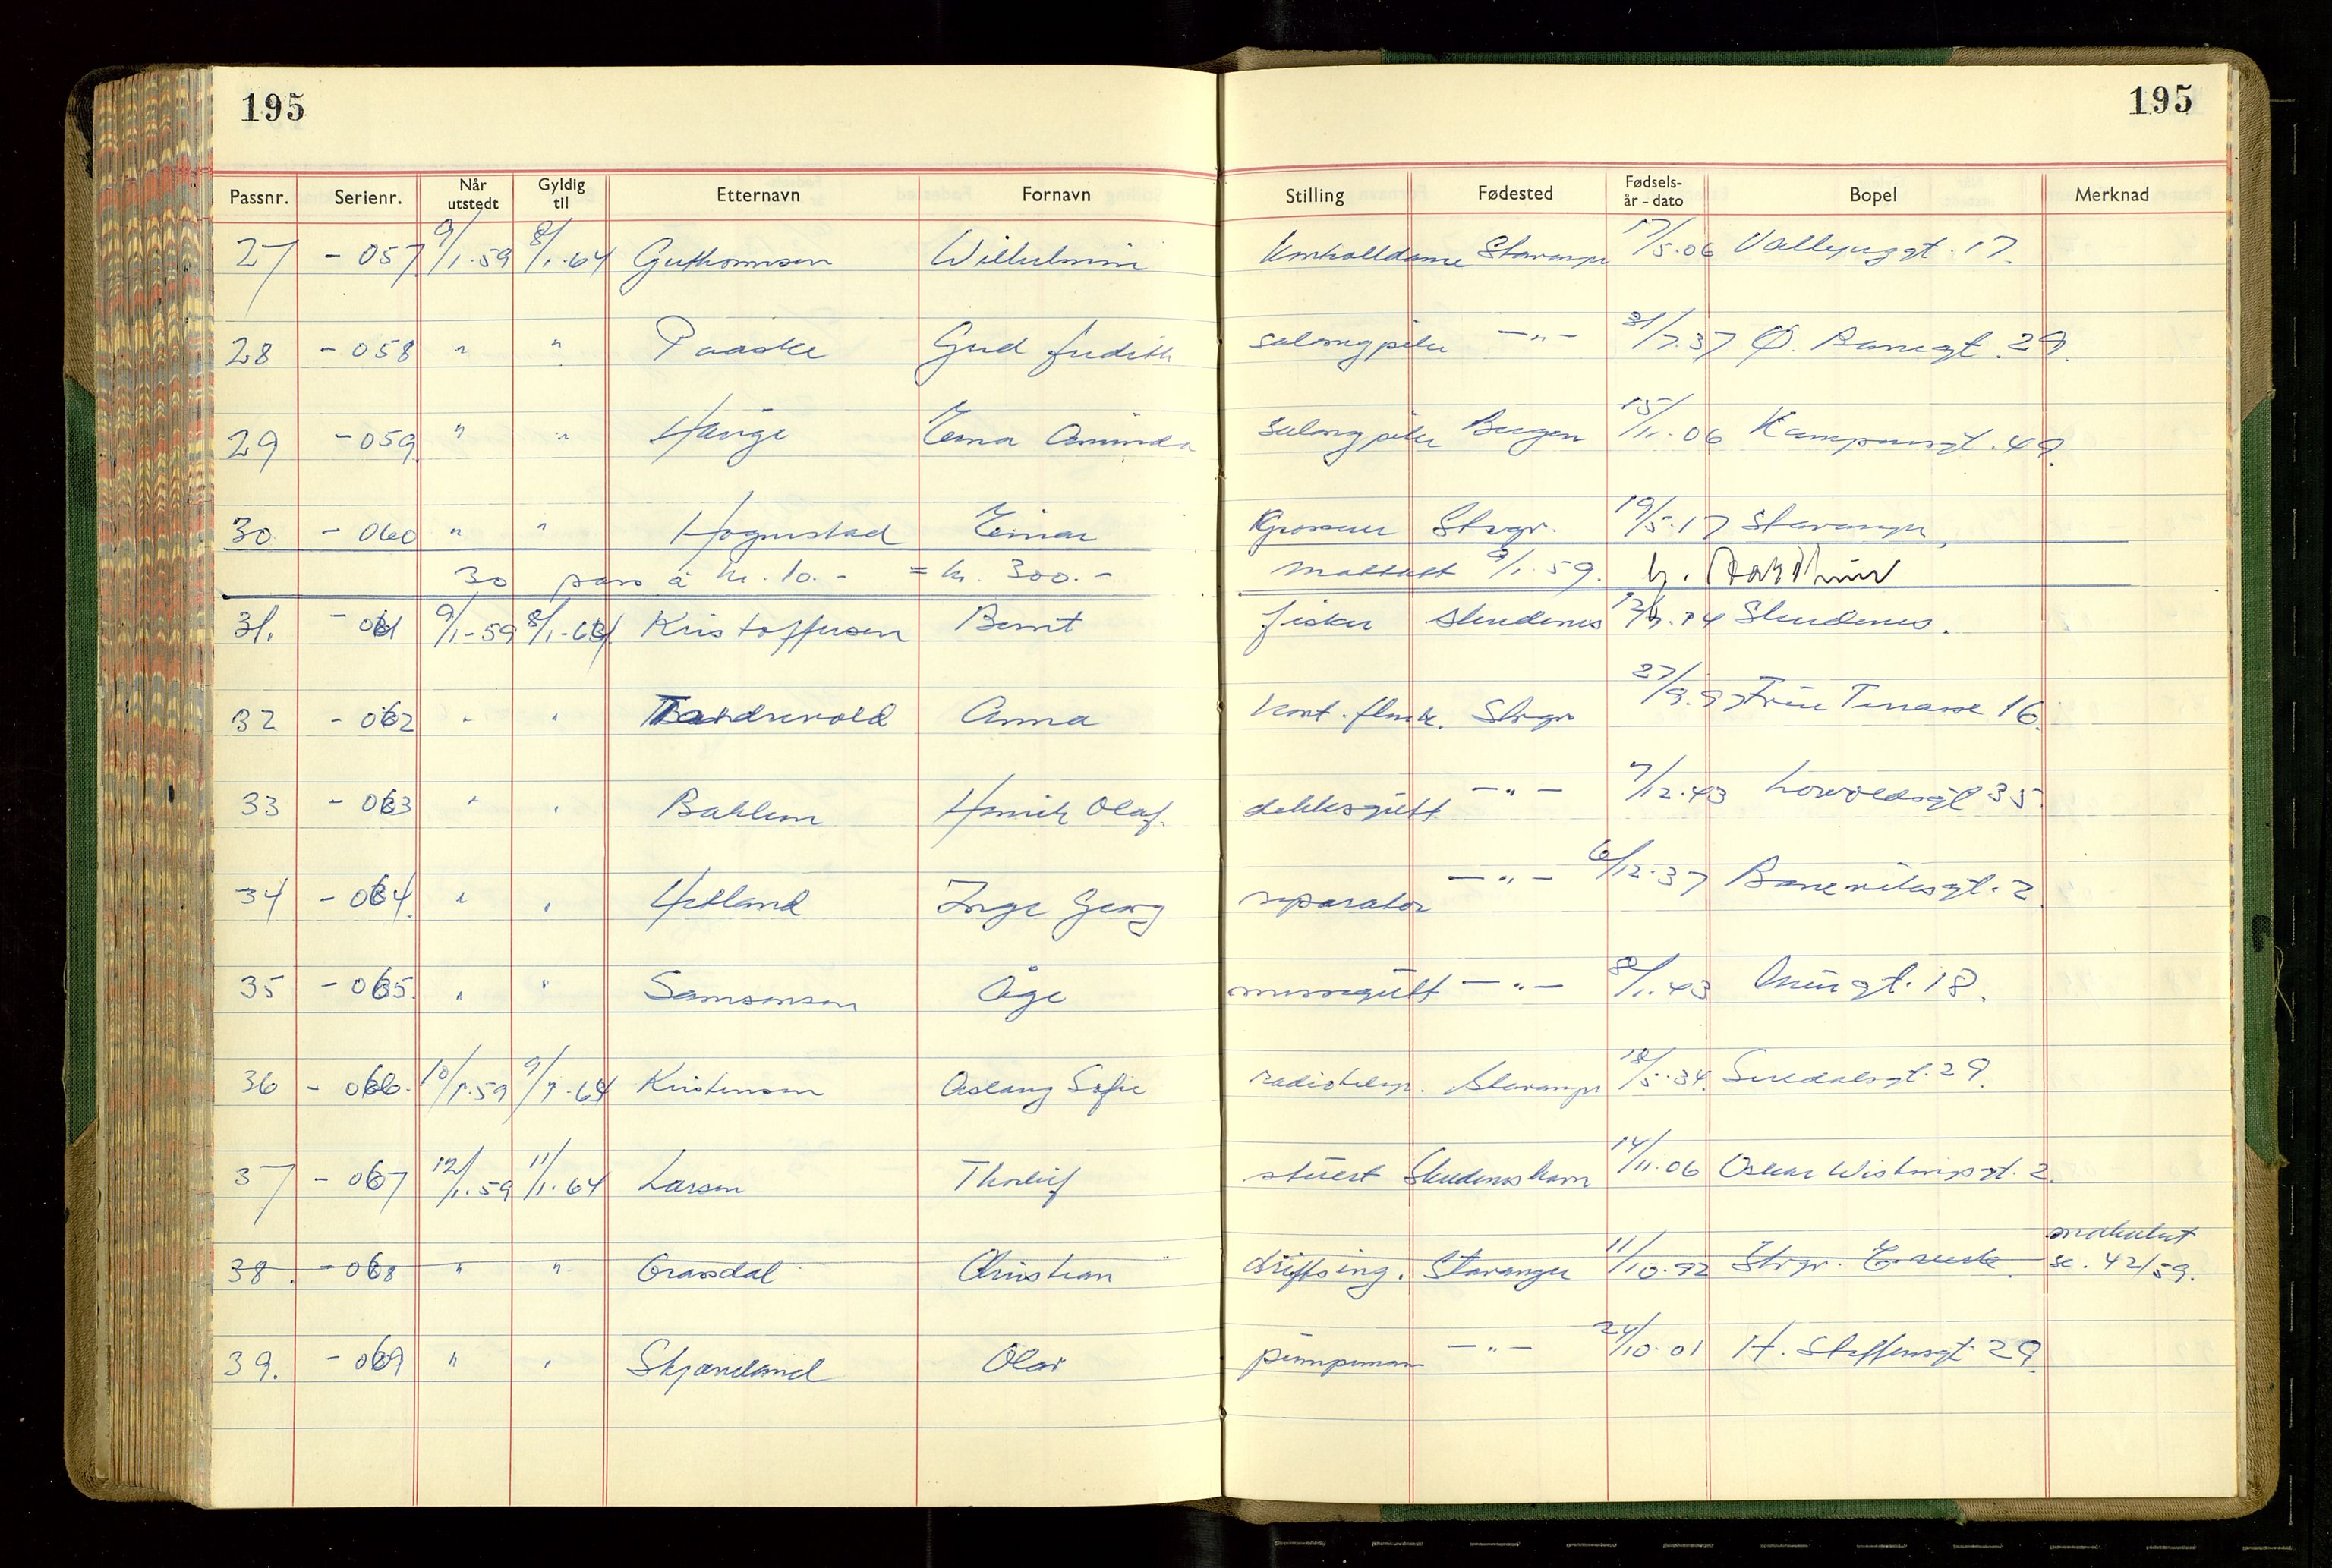 195
195
Passnr. Serienr. Når utstedt Gyldig til Etternavn Fornavn Stilling Fødested Fødsels- år - dato Bopel Merknad
27 - 057 9/1.59 8/1.64 Guthormsen Wilhelmine Stavanger 17/5.06 17.
28 - 058 " " Paaske Gud Judith salongpike -"- 31/7.37 Ø. Banegt. 29.
29 - 059 " " Hauge Erna Aminda salongpike Bergen 15/11.06 Kampensgt. 49.
30 - 060 " " Hognestad Einar Grosserer Stvgr. 19/5.17 Stavanger
30 pass à kr. 10.- = kr. 300.- mottatt 9/1.59.
31. - 061 9/1-59 8/1-64 Kristoffersen Bernt fisker Skudenes Skudenes.
32 - 062 " " Anna kont. Stvgr 27/9.97 Frue Terrasse 16.
33 - 063 " " Bakken Henrik Olaf. dekksgutt -"- 7/12.43 Lovoldsgt 35.
34 - 064. " " Hetland Inge Georg reparatør -"- 6/12.37 Baneviksgt. 2.
35 - 065. " " Samsonsen Åge messegutt -"- 1.43 18.
36 - 066. 10/1.59 9/1.64 Kristensen Aslaug Sofie radiotelegr. Stavanger 18/5.34. Suldalsgt. 29.
37 - 067 12/1.59 11/1.64 Larsen Thorleif stuert Skudeneshavn 14/11.06 Oskar Wistingsgt. 2.
38. - 068 " " Grassdal Christian driftsing. Stavanger 11/10.92 Stvgr. makulert se. 42/59.
39. - 069 " " Skjæveland Olav pumpemann -"- 24/10.01 H. Steffensgt. 29.